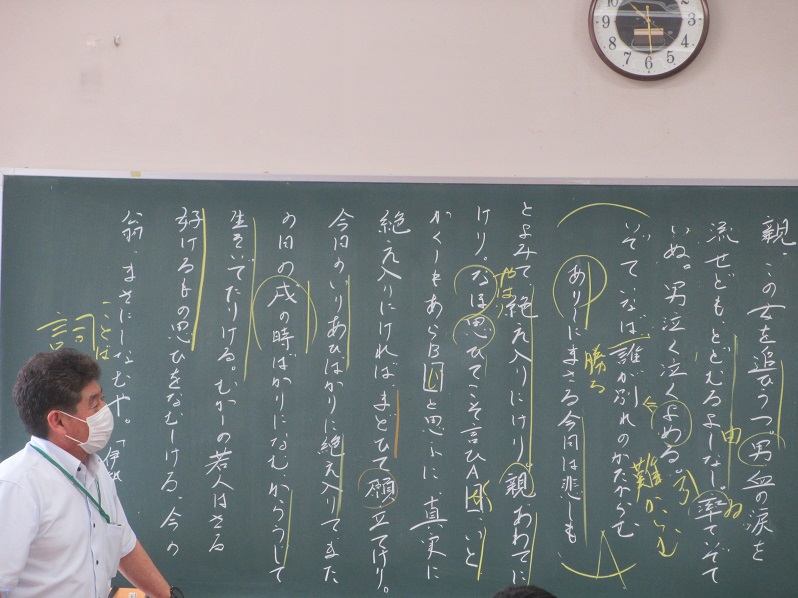 親、この女を追ひうつ。男、血の涙を
流せども、とどむるよしなし。率て出て
由
ゐ
いぬ。男泣く泣くよめる。
いでていなば誰か別れのかたからむ
難からむ
ありしにまさる今日は悲しも
勝る
とよみて、絶え入りにけり。親あわてに
けり。なほ思ひてこそ言ひA、いと
やはり
かくしもあらBと思ふに、真実に
絶え入りにければ、まどひて願立てけり。
今日のいりあひばかりに絶え入りて、また
の日の戌の時ばかりになむ、からうじて
生きいでたりける。むかしの若人はさる
好けるもの思ひをなむしける。今の
翁、まさにしなむや。「伊勢
詞
ことば